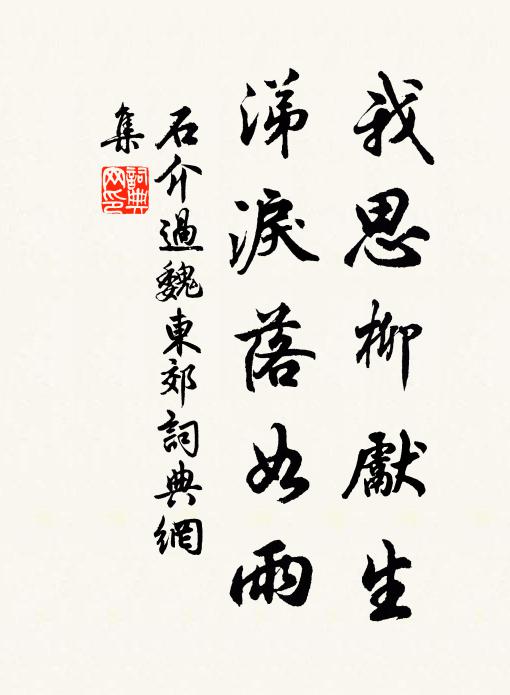 我思柳獻生
涕淚落如雨
石介過魏東郊詞典網
集
詞典
网印